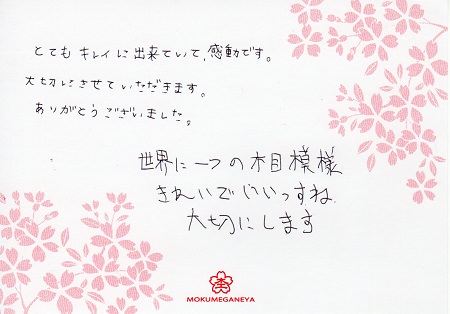 とても キレイに出来ていて、感動です。
大切にさせていただきます。
ありがとうございました。
世界に一つの木目模様
きれいでいいっすね
大切にします
MOKUMEGANEYA